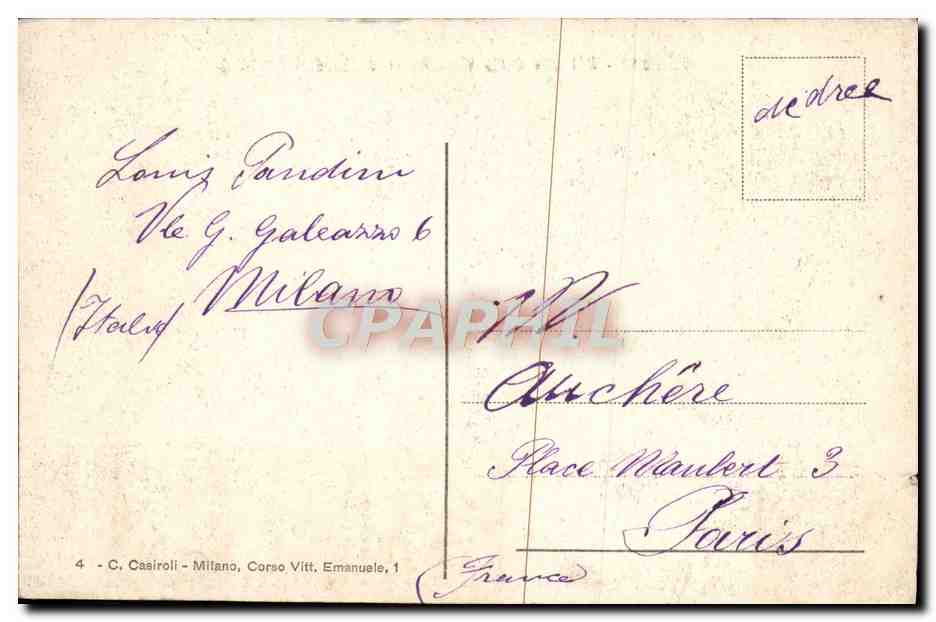 Louis Pandini
Vle G. Galeazzo 6
Milano
(Italy)
Auchère
Place Maubert 3
Paris
(France)
4 - C. Casiroli - Milano, Corso Vitt. Emanuele, 1
CPAPHIL